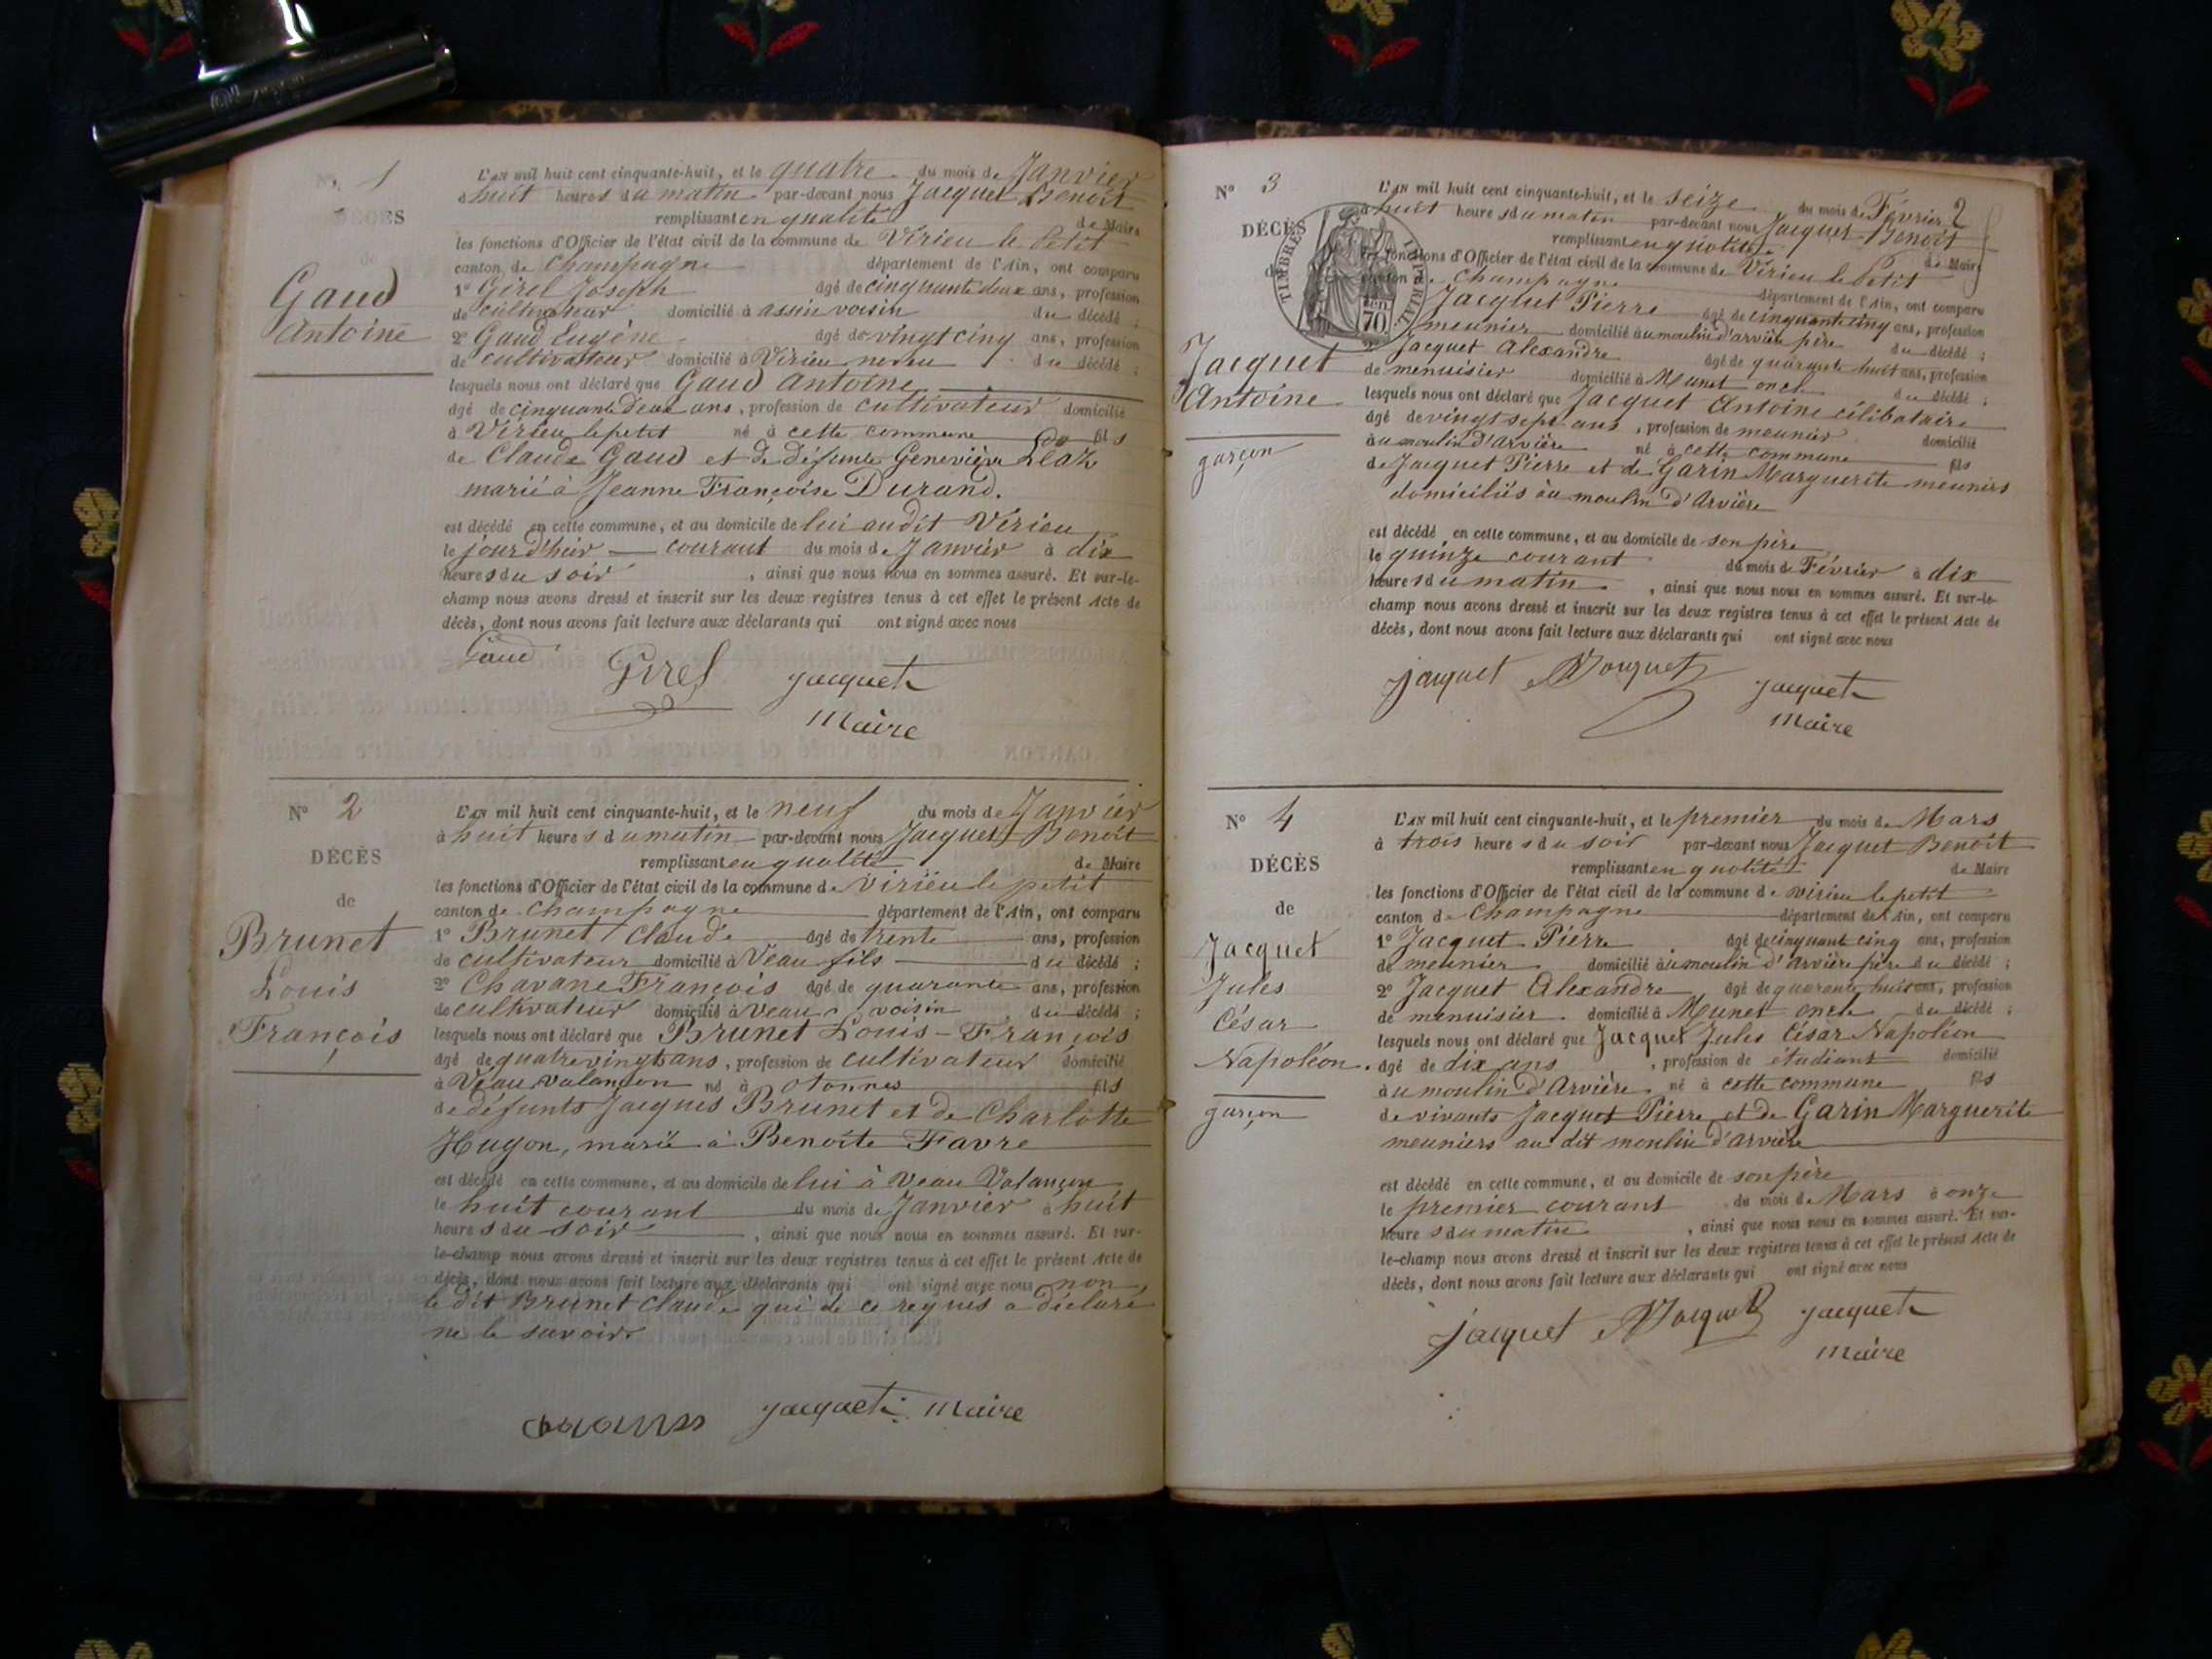 N° 1
DÉCÈS
de
Gaud
Antoine
L'AN mil huit cent cinquante-huit, et le quatre du mois de Janvier
à huit heures du matin par-devant nous Jacquet Benoit
remplissant en qualité de Maire
les fonctions d'Officier de l'état civil de la commune de Virieu le Petit
canton de Champagne département de l'Ain, ont comparu
1° Girel Joseph âgé de cinquante deux ans, profession
de cultivateur domicilié à assin voisin du décédé ;
2° Gaud Eugène âgé de vingt cinq ans, profession
de cultivateur domicilié à Virieu neveu du décédé ;
lesquels nous ont déclaré que Gaud Antoine
âgé de cinquante deux ans, profession de cultivateur domicilié
à Virieu le petit né à cette commune fils
de Claude Gaud et de défunte Geneviève
marié à Jeanne Françoise Durand.
est décédé en cette commune, et au domicile de lui audit Virieu
le jour d'hier courant du mois de Janvier à dix
heures du soir , ainsi que nous nous en sommes assuré. Et sur-le-
champ nous avons dressé et inscrit sur les deux registres tenus à cet effet le présent Acte de
décès, dont nous avons fait lecture aux déclarants qui ont signé avec nous
Gaud Girel Jacquet
Maire
N° 2
DÉCÈS
de
Brunet
Louis
François
L'AN mil huit cent cinquante-huit, et le neuf du mois de Janvier
à huit heures du matin par-devant nous Jacquet Benoit
remplissant en qualité de Maire
les fonctions d'Officier de l'état civil de la commune de Virieu le petit
canton de Champagne département de l'Ain, ont comparu
1° Brunet Claude âgé de trente ans, profession
de cultivateur domicilié à Veau fils du décédé ;
2° Chavane François âgé de quarante ans, profession
de cultivateur domicilié à Veau voisin du décédé ;
lesquels nous ont déclaré que Brunet Louis-François
âgé de quatre vingts ans, profession de cultivateur domicilié
à Veau Valançon né à otonnes fils
de défunts Jacques Brunet et de Charlotte
Hugon, marié à Benoite Favre
est décédé en cette commune, et au domicile de lui à Veau Valançon
le huit courant du mois de Janvier à huit
heures du soir , ainsi que nous nous en sommes assuré. Et sur-
le-champ nous avons dressé et inscrit sur les deux registres tenus à cet effet le présent Acte de
décès, dont nous avons fait lecture aux déclarants qui ont signé avec nous non
le dit Brunet Claude qui de ce requis a déclaré
ne le savoir
Jacquet Maire
N° 3
DÉCÈS
de
Jacquet
Antoine
garçon
TIMBRE IMPÉRIAL
70
L'AN mil huit cent cinquante-huit, et le seize du mois de Février 2
à huit heures du matin par-devant nous Jacquet Benoit
remplissant en qualité de Maire
les fonctions d'Officier de l'état civil de la commune de Virieu le Petit
canton de Champagne département de l'Ain, ont comparu
Jacquet Pierre âgé de cinquante cinq ans, profession
meunier domicilié au moulin d'arvière père du décédé ;
2° Jacquet Alexandre âgé de quarante huit ans, profession
de menuisier domicilié à Munet oncle du décédé ;
lesquels nous ont déclaré que Jacquet Antoine célibataire
âgé de vingt sept ans , profession de meunier domicilié
au moulin d'Arvière né à cette commune fils
de Jacquet Pierre et de Garin Marguerite meuniers
domiciliés au moulin d'Arvière
est décédé en cette commune, et au domicile de son père
le quinze courant du mois de Février à dix
heures du matin , ainsi que nous nous en sommes assuré. Et sur-le-
champ nous avons dressé et inscrit sur les deux registres tenus à cet effet le présent Acte de
décès, dont nous avons fait lecture aux déclarants qui ont signé avec nous
jacquet Jacquet Jacquet
Maire
N° 4
DÉCÈS
de
Jacquet
Jules
César
Napoléon.
garçon
L'AN mil huit cent cinquante-huit, et le premier du mois de Mars
à trois heures du soir par-devant nous Jacquet Benoit
remplissant en qualité de Maire
les fonctions d'Officier de l'état civil de la commune de virieu le petit
canton de Champagne département de l'Ain, ont comparu
1° Jacquet Pierre âgé de cinquante cinq ans, profession
de meunier domicilié au moulin d'Arvière père du décédé ;
2° Jacquet Alexandre âgé de quarante huit ans, profession
de menuisier domicilié à Munet oncle du décédé ;
lesquels nous ont déclaré que Jacquet Jules César Napoléon
âgé de dix ans , profession de étudiant domicilié
au moulin d'Arvière né à cette commune fils
de vivants Jacquet Pierre et de Garin Marguerite
meuniers au dit moulin d'Arvière
est décédé en cette commune, et au domicile de son père
le premier courant du mois de Mars à onze
heures du matin , ainsi que nous nous en sommes assuré. Et sur-
le-champ nous avons dressé et inscrit sur les deux registres tenus à cet effet le présent Acte de
décès, dont nous avons fait lecture aux déclarants qui ont signé avec nous
jacquet Jacquet Jacquet
Maire